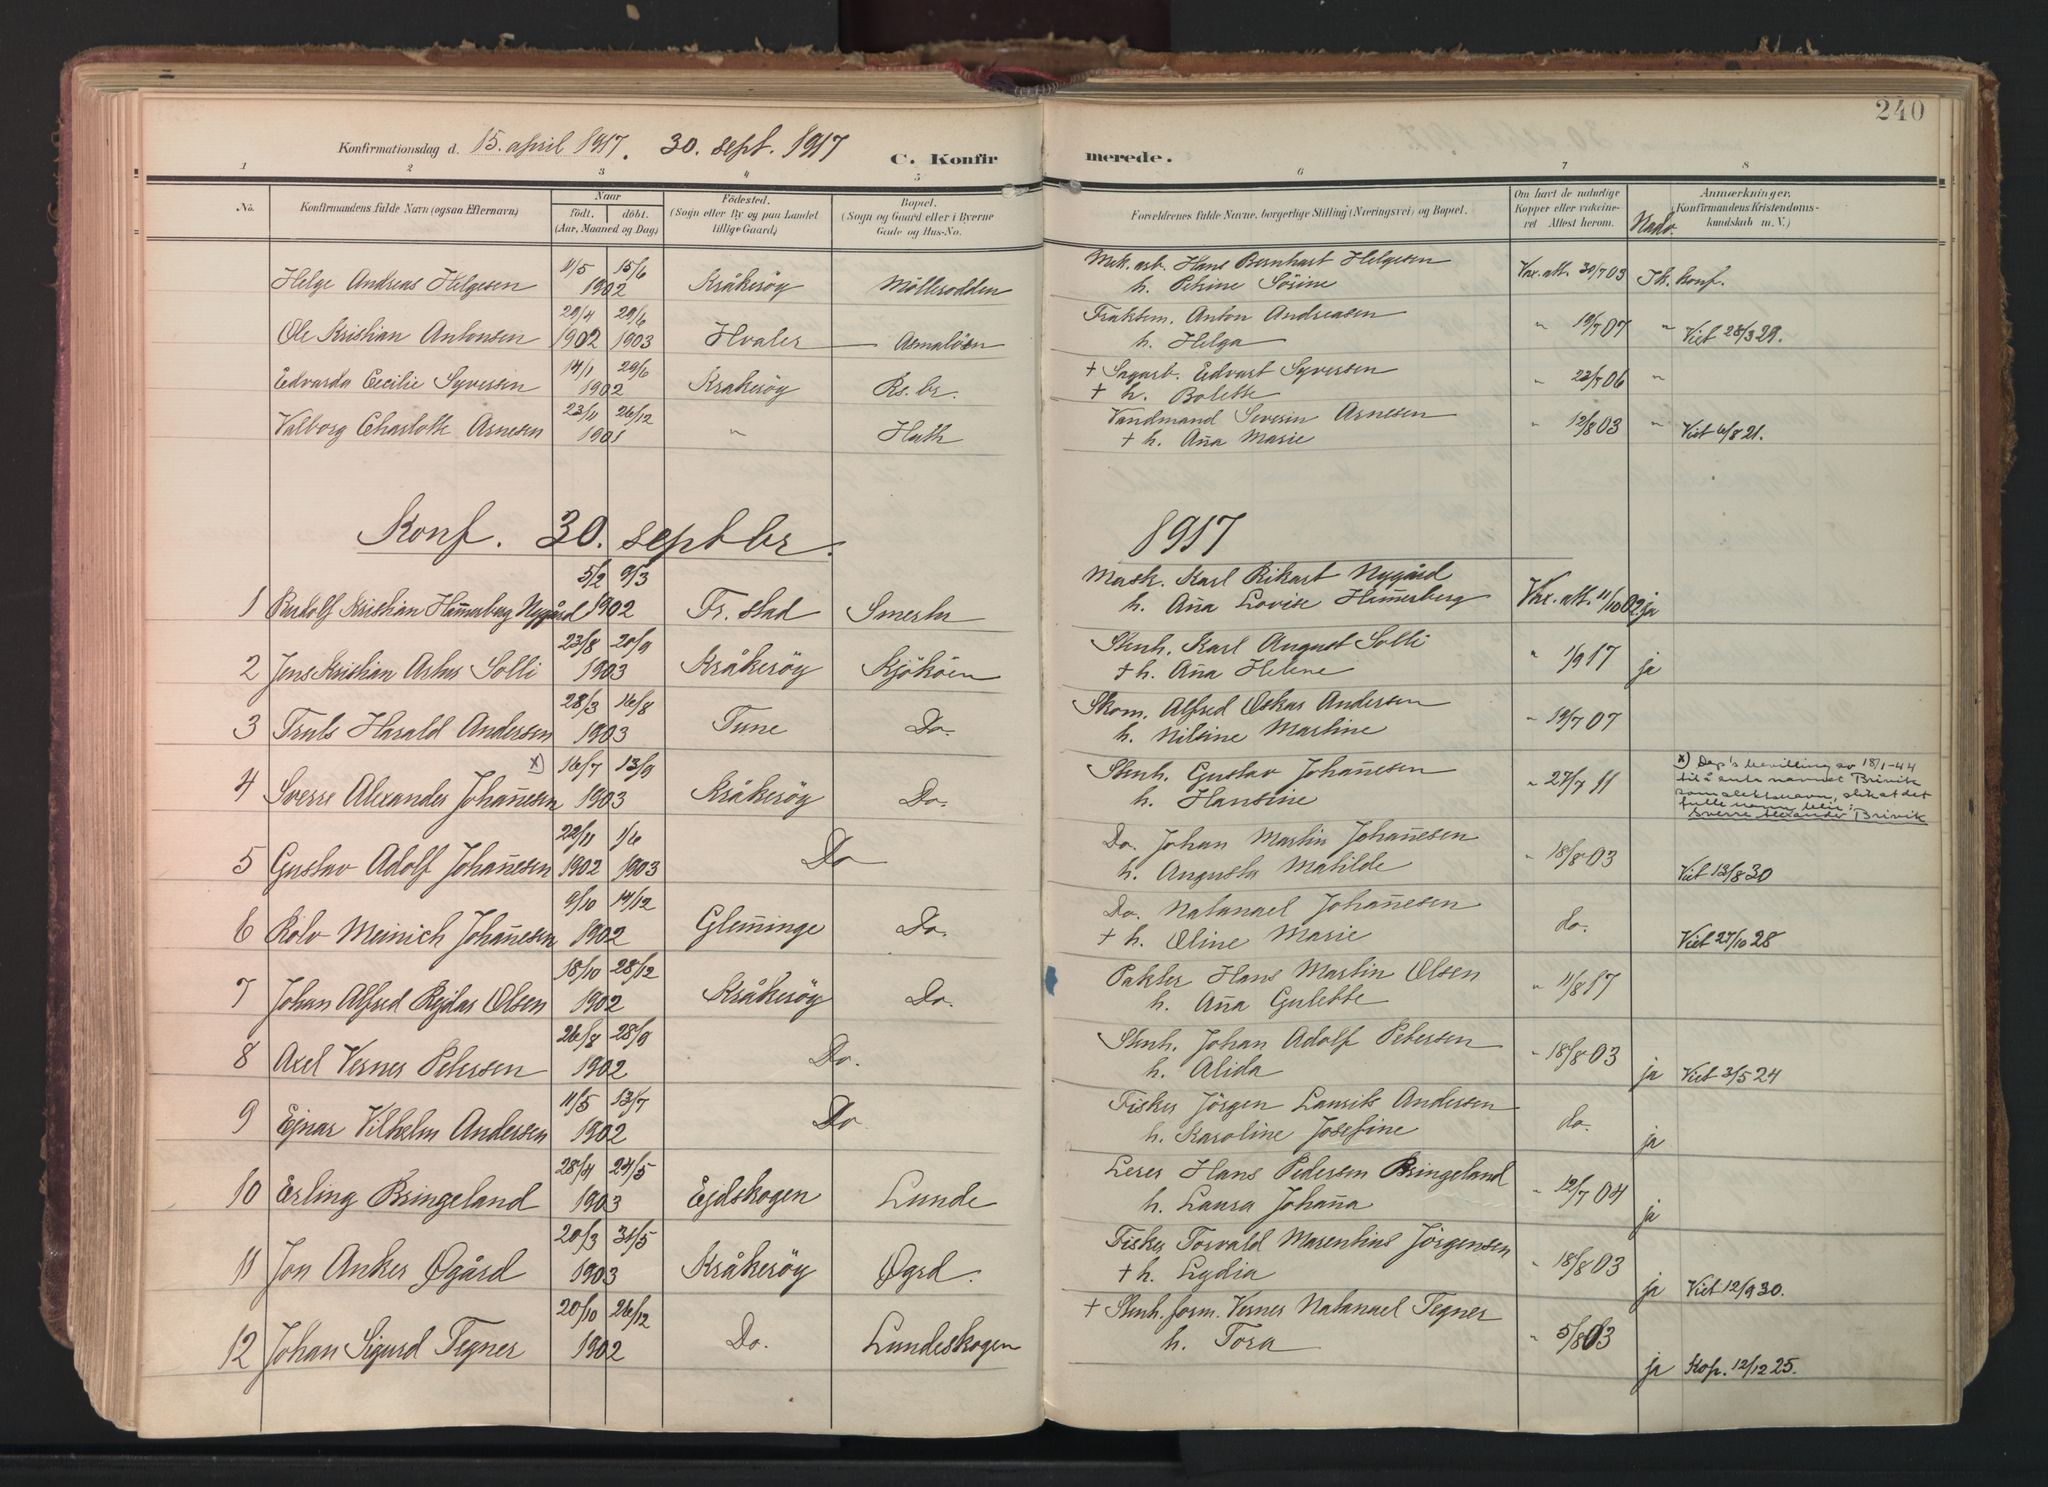 240
Konfirmationsdag d. 15. april 1917. 30. sept. 1917 C. Konfirmerede.
1 2 3 4 5 6 7 8
No. Konfirmandens fulde Navn (ogsaa Efternavn) Naar født. døbt. (Aar, Maaned og Dag) Fødested. (Sogn eller By og paa Landet tillige Gaard) Bopæl. (Sogn og Gaard eller i Byerne Gade og Hus-No. Forældrenes fulde Navne, borgerlige Stilling (Næringsvei) og Bopæl. Om havt de naturlige Kopper eller vakcineret Attest herom. Nadv. Anmærkninger. (Konfirmandens Kristendomskundskab m. V.)
Helge Andreas Helgesen 11/5 15/6 1902 Kråkerøy Möllerodden Mek. arb. Hans Bernhart Helgesen Vax. att. 30/7 03 Ik. konf.
h. Petrine Sörine
Ole Kristian Antonsen 29/4 1902 29/6 1903 Hvaler Asmalöen Fraktem. Anton Andreasen " 19/7 07 " Viet 28/3 29.
h. Helga
Edvarda Cecilie Syversen 14/1 29/6 1902 Kråkeröy Rs. br. † Sagarb. Edvart Syversen " 23/7 06 "
† h. Bolette
Valborg Charlotte Arnesen 23/11 26/12 1901 " Huth Vandmand Severin Arnesen " 12/8 03 " Viet 6/8 21.
† h. Aña Marie
Konf. 30. septbr. 1917
1 Rudolf Kristian Ham̄erberg Nygård 5/2 9/3 1902 Fr. stad Smertu Mask. Karl Rikart Nygård Vax. att. 11/10 02 ja
h. Aña Lovise Ham̄erberg
2 Jens Kristian Artur Solli 23/8 20/9 1903 Kråkeröy Kjököen Stenh. Karl August Solli " 1/9 17 ja
† h. Aña Helene
3 Truls Harald Andersen 28/3 16/8 1903 Tune Do. Skom. Alfred Oskar Andersen " 19/7 07
h. Nilsine Martine
4 Sverre Alexander Johañesen x) 16/7 13/9 1903 Kråkeröy Do. Stenh. Gustav Johañesen " 27/7 11
h. Hansine
x) Dep's bevilling av 18/1-44
til å anta navnet Brivik
som slektsnavn, slik at det
fulle navn blir:
Sverre Alexander Brivik
5 Gustav Adolf Johañesen 22/11 1902 1/6 1903 Do Do. Johan Martin Johañesen " 18/8 03 Viet 13/8 30
h. Augusta Matilde
6 Rolv Meinich Johañesen 9/10 14/12 1902 Glem̄inge Do. Do. Natanael Johañesen do. Viet 27/10 28
† h. Oline Marie
7 Johan Alfred Rejdar Olsen 18/10 28/12 1902 Kråkeröy Do. Pakter Hans Martin Olsen " 11/8 17
h. Aña Gulette
8 Axel Verner Petersen 26/8 28/9 1902 Do. Stenh. Johan Adolf Petersen " 18/8 03 ja Viet 3/5 24
h. Alida
9 Ejnar Vilhelm Andersen 11/5 13/7 1902 Do. Fisker Jörgen Laurits Andersen do. ja
h. Karoline Josefine
10 Erling Bringeland 28/4 24/5 1903 Ejdskogen Lunde Lerer Hans Pedersen Bringeland " 12/7 04 ja
h. Laura Johaña
11 Jon Anker Øgård 20/3 31/5 1903 Kråkeröy Øgrd. Fisker Torvald Marentius Jörgensen " 18/8 03 ja Viet 12/9 30.
† h. Lydia
12 Johan Sigurd Tegner 20/10 26/12 1902 Do. Lundeskogen † Stenh. form. Verner Natanael Tegner " 5/8 03 ja Kop. 12/12 25.
h. Tora